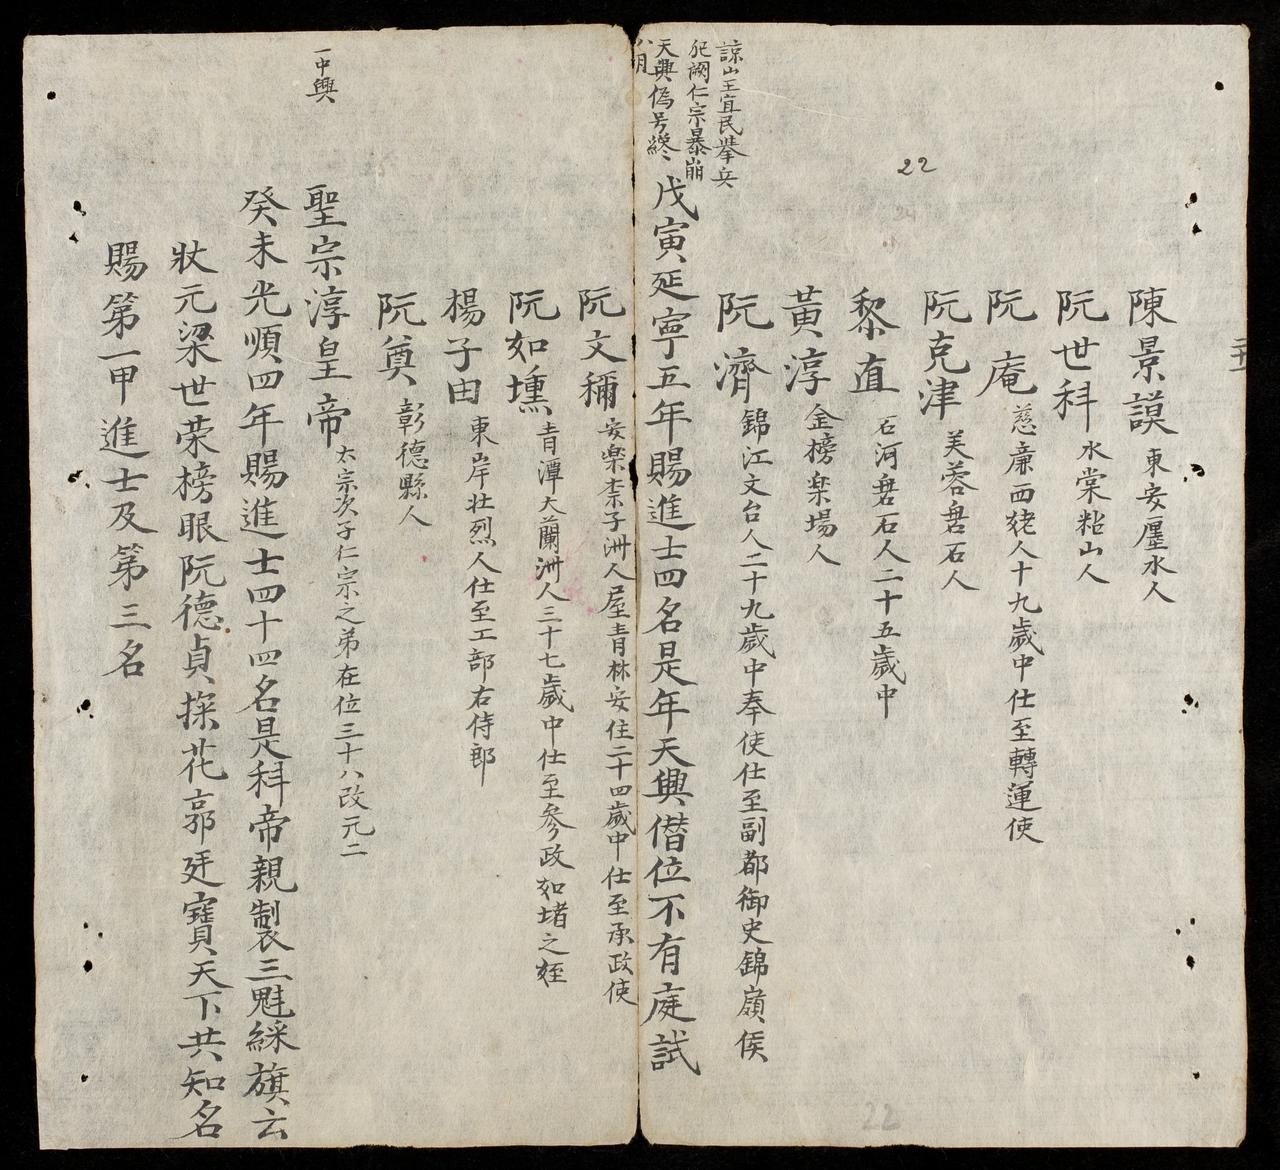 陳景謨 東安廛水人
阮世科 水棠粘山人
阮庵 慈廉西姥人十九歲中仕至轉運使
阮克津 芙蓉磐石人
黎直 石河磐石人二十五歲中
黃淳 金榜楽場人
阮濟 錦江文台人二十九歲中奉使仕至副都御史錦嶺侯
22
諒山王宜民挙兵
犯闕仁宗暴崩
天興僞号縂
八月
戊寅延寧五年賜進士四名是年天興僭位不有庭試
阮文穪 安楽柰子洲人屋青林安住二十四歲中仕至承政使
阮如壎 青潭大蘭洲人三十七歲中仕至參政如堵之姪
楊子由 東岸壮烈人仕至工部右侍郎
阮奠 彰德縣人
一中興
聖宗淳皇帝 太宗次子仁宗之弟在位三十八改元二
癸未光順四年賜進士四十四名是科帝親製三魁綵旗云
狀元梁世荣榜眼阮德貞探花郭廷寶天下共知名
賜第一甲進士及第三名
22